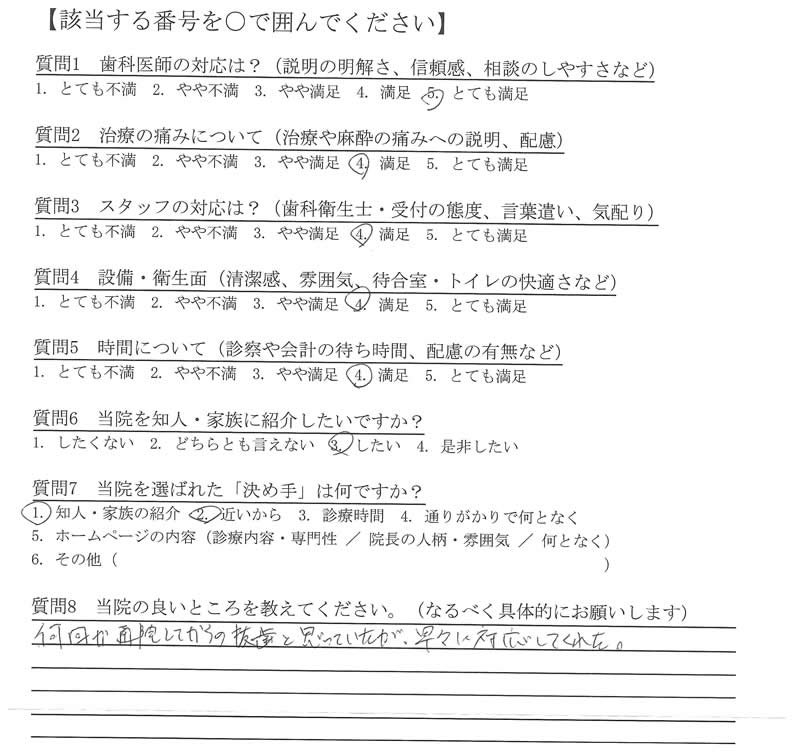 【該当する番号を○で囲んでください】
質問1 歯科医師の対応は？（説明の明解さ、信頼感、相談のしやすさなど）
1. とても不満 2. やや不満 3. やや満足 4. 満足 5. とても満足
質問2 治療の痛みについて（治療や麻酔の痛みへの説明、配慮）
1. とても不満 2. やや不満 3. やや満足 4. 満足 5. とても満足
質問3 スタッフの対応は？（歯科衛生士・受付の態度、言葉遣い、気配り）
1. とても不満 2. やや不満 3. やや満足 4. 満足 5. とても満足
質問4 設備・衛生面（清潔感、雰囲気、待合室・トイレの快適さなど）
1. とても不満 2. やや不満 3. やや満足 4. 満足 5. とても満足
質問5 時間について（診察や会計の待ち時間、配慮の有無など）
1. とても不満 2. やや不満 3. やや満足 4. 満足 5. とても満足
質問6 当院を知人・家族に紹介したいですか？
1. したくない 2. どちらとも言えない 3. したい 4. 是非したい
質問7 当院を選ばれた「決め手」は何ですか？
1. 知人・家族の紹介 2. 近いから 3. 診療時間 4. 通りがかりで何となく
5. ホームページの内容（診療内容・専門性 ／ 院長の人柄・雰囲気 ／ 何となく）
6. その他（ ）
質問8 当院の良いところを教えてください。（なるべく具体的にお願いします）
何回か 院してからの抜歯と思っていたが、早々に対応してくれた。